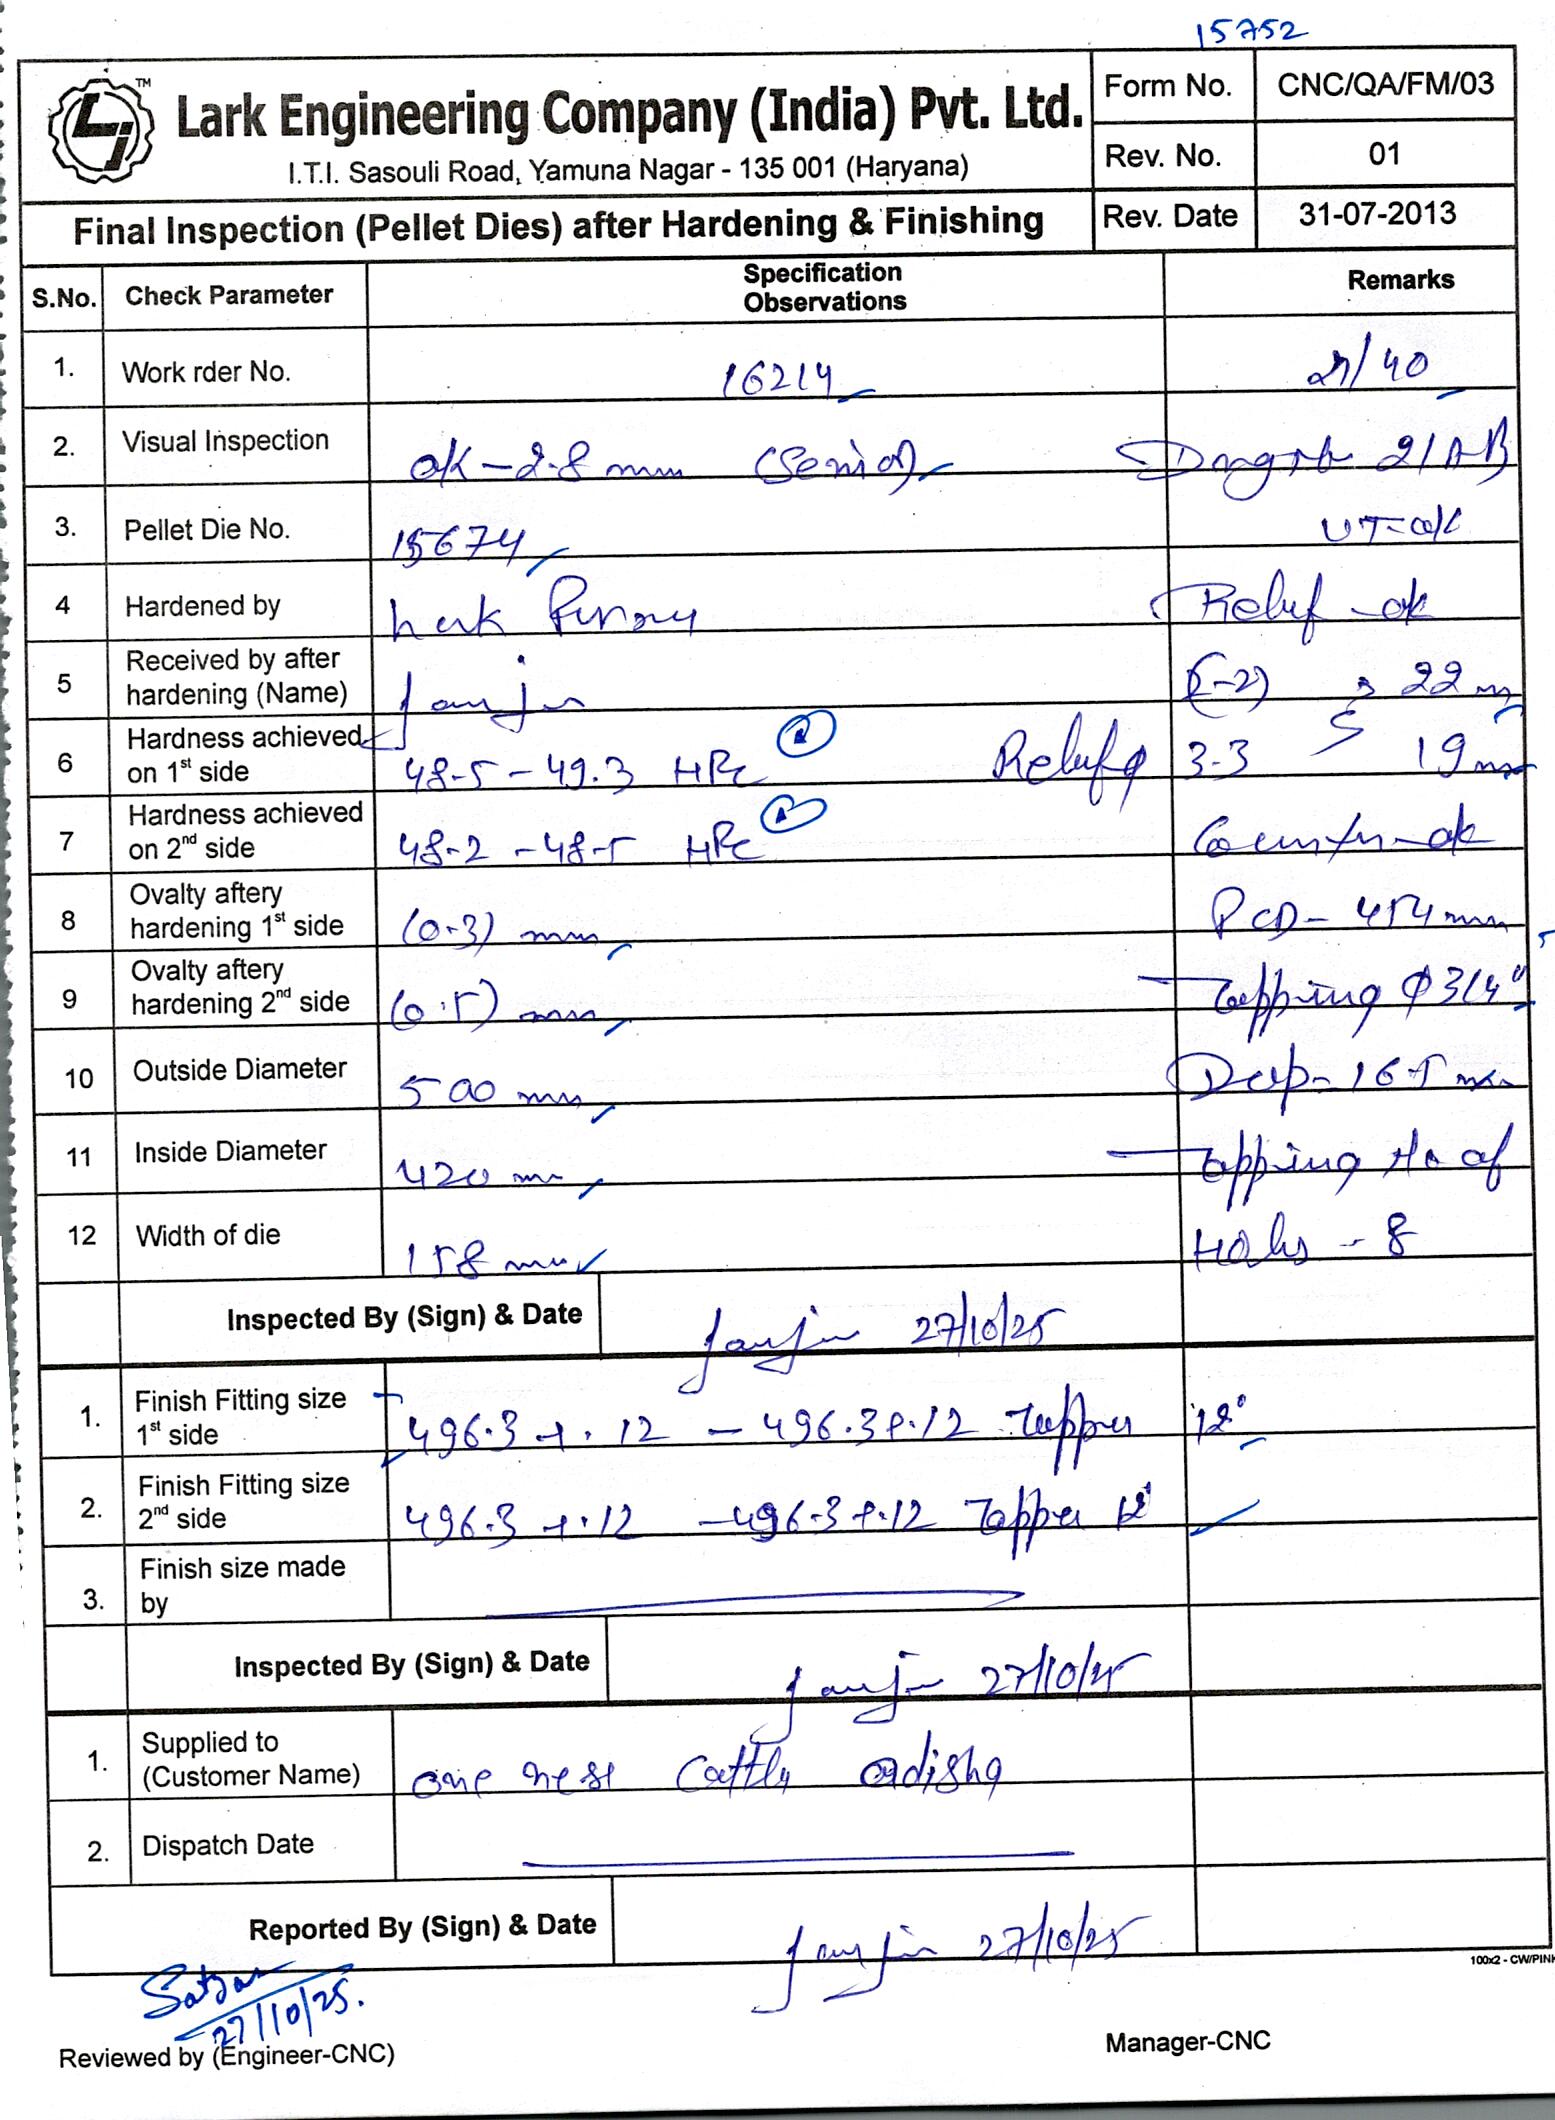 15752
TM
Lark Engineering Company (India) Pvt. Ltd.
I.T.I. Sasouli Road, Yamuna Nagar - 135 001 (Haryana)
Form No. CNC/QA/FM/03
Rev. No. 01
Final Inspection (Pellet Dies) after Hardening & Finishing
Rev. Date 31-07-2013
S.No. Check Parameter Specification Observations Remarks
1. Work rder No. 16214 /40
2. Visual Inspection ok - 2.8 mm (Senior)
3. Pellet Die No. 15674 UT-ok
4 Hardened by Relief - ok
5 Received by after hardening (Name) (-2) 22 m
6 Hardness achieved on 1st side 48.5 - 49.3 HRc Relief φ 3.3 19 mm
7 Hardness achieved on 2nd side 48.2 - 48.5 HRc Counter - ok
8 Ovalty aftery hardening 1st side (0.3) mm PCD - 454 mm
9 Ovalty aftery hardening 2nd side (0.5) mm Tapping φ 3/4"
10 Outside Diameter 500 mm 16.5 mm
11 Inside Diameter 420 mm Tapping No of
12 Width of die 158 mm Hols - 8
Inspected By (Sign) & Date 27/10/25
1. Finish Fitting size 1st side 496.3 +.12 - 496.3 +.12 Tapper 12°
2. Finish Fitting size 2nd side 496.3 +.12 - 496.3 +.12 Tapper 12°
3. Finish size made by
Inspected By (Sign) & Date 27/10/25
1. Supplied to (Customer Name) one ness Cattle odisha
2. Dispatch Date
Reported By (Sign) & Date 27/10/25
100x2 - CW/PINK
27/10/25.
Reviewed by (Engineer-CNC)
Manager-CNC